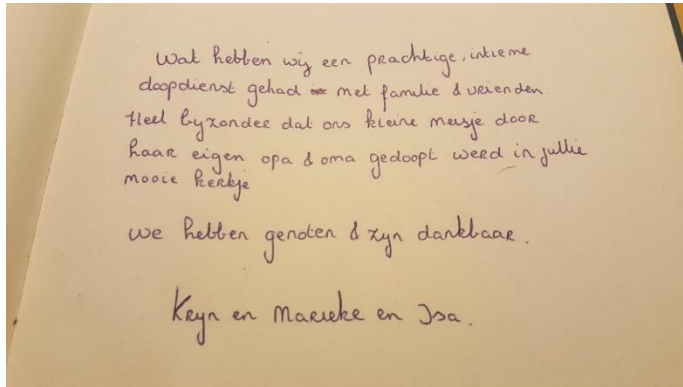 Wat hebben wij een prachtige, intieme
doopdienst gehad met familie & vrienden.
Heel byzonder dat ons kleine meisje door
haar eigen opa & oma gedoopt werd in jullie
mooie kerkje
we hebben genoten & zyn dankbaar.
Kryn en Marieke en Isa.